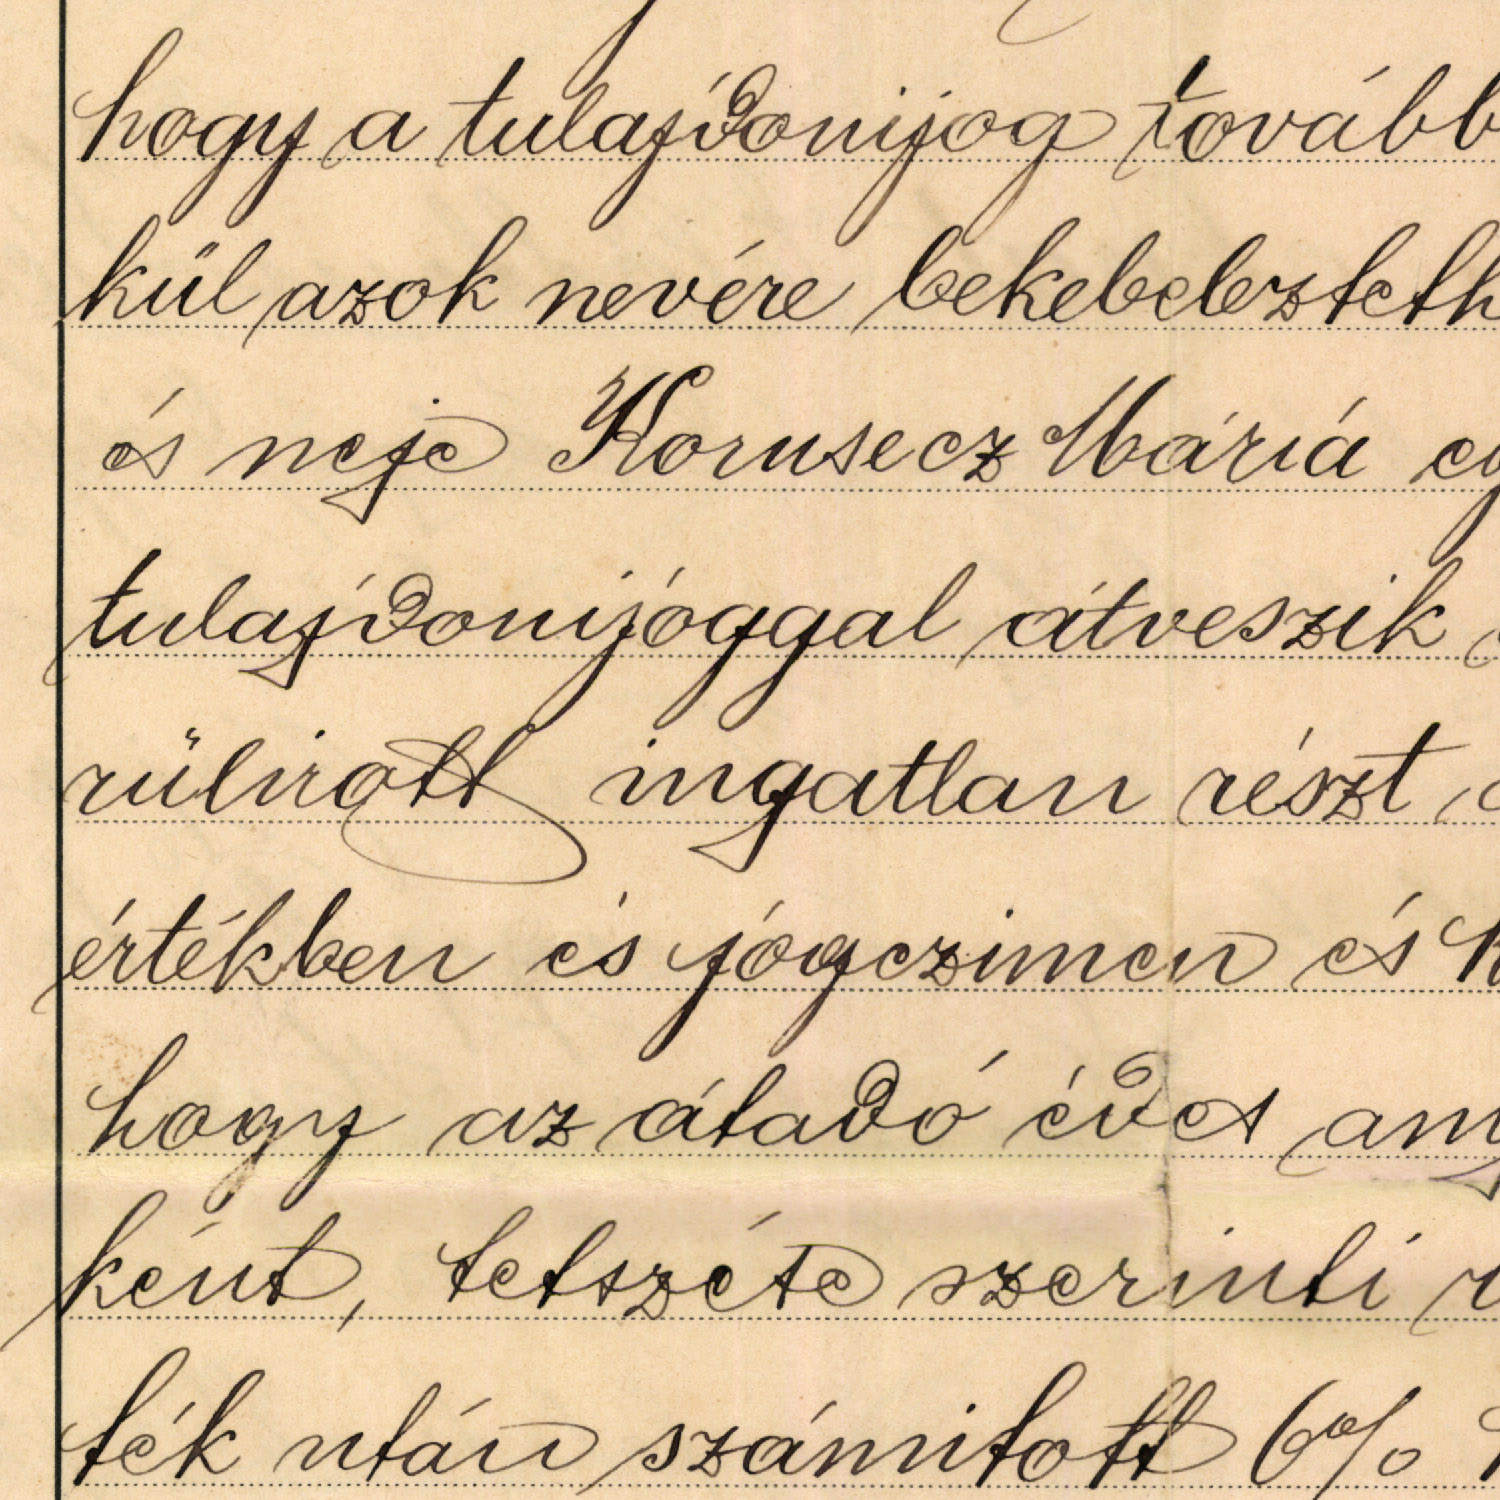 hogy a tulajdonijog további
kül azok nevére bekebeleztethe
és neje Korusecz Máriá eg
tulajdonijóggal átveszik
rülirott ingatlan részt
értékben és jógczimen és k
hogy az átadó édes any
ként, tetszéte szerinti
ték után számitott 6%